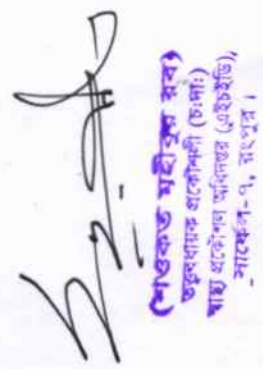 (শওকত মহীবুর রব)
তত্ত্বাবধায়ক প্রকৌশলী (চঃদাঃ)
স্বাস্থ্য প্রকৌশল অধিদপ্তর (এইচইডি),
সার্কেল-৭, রংপুর।